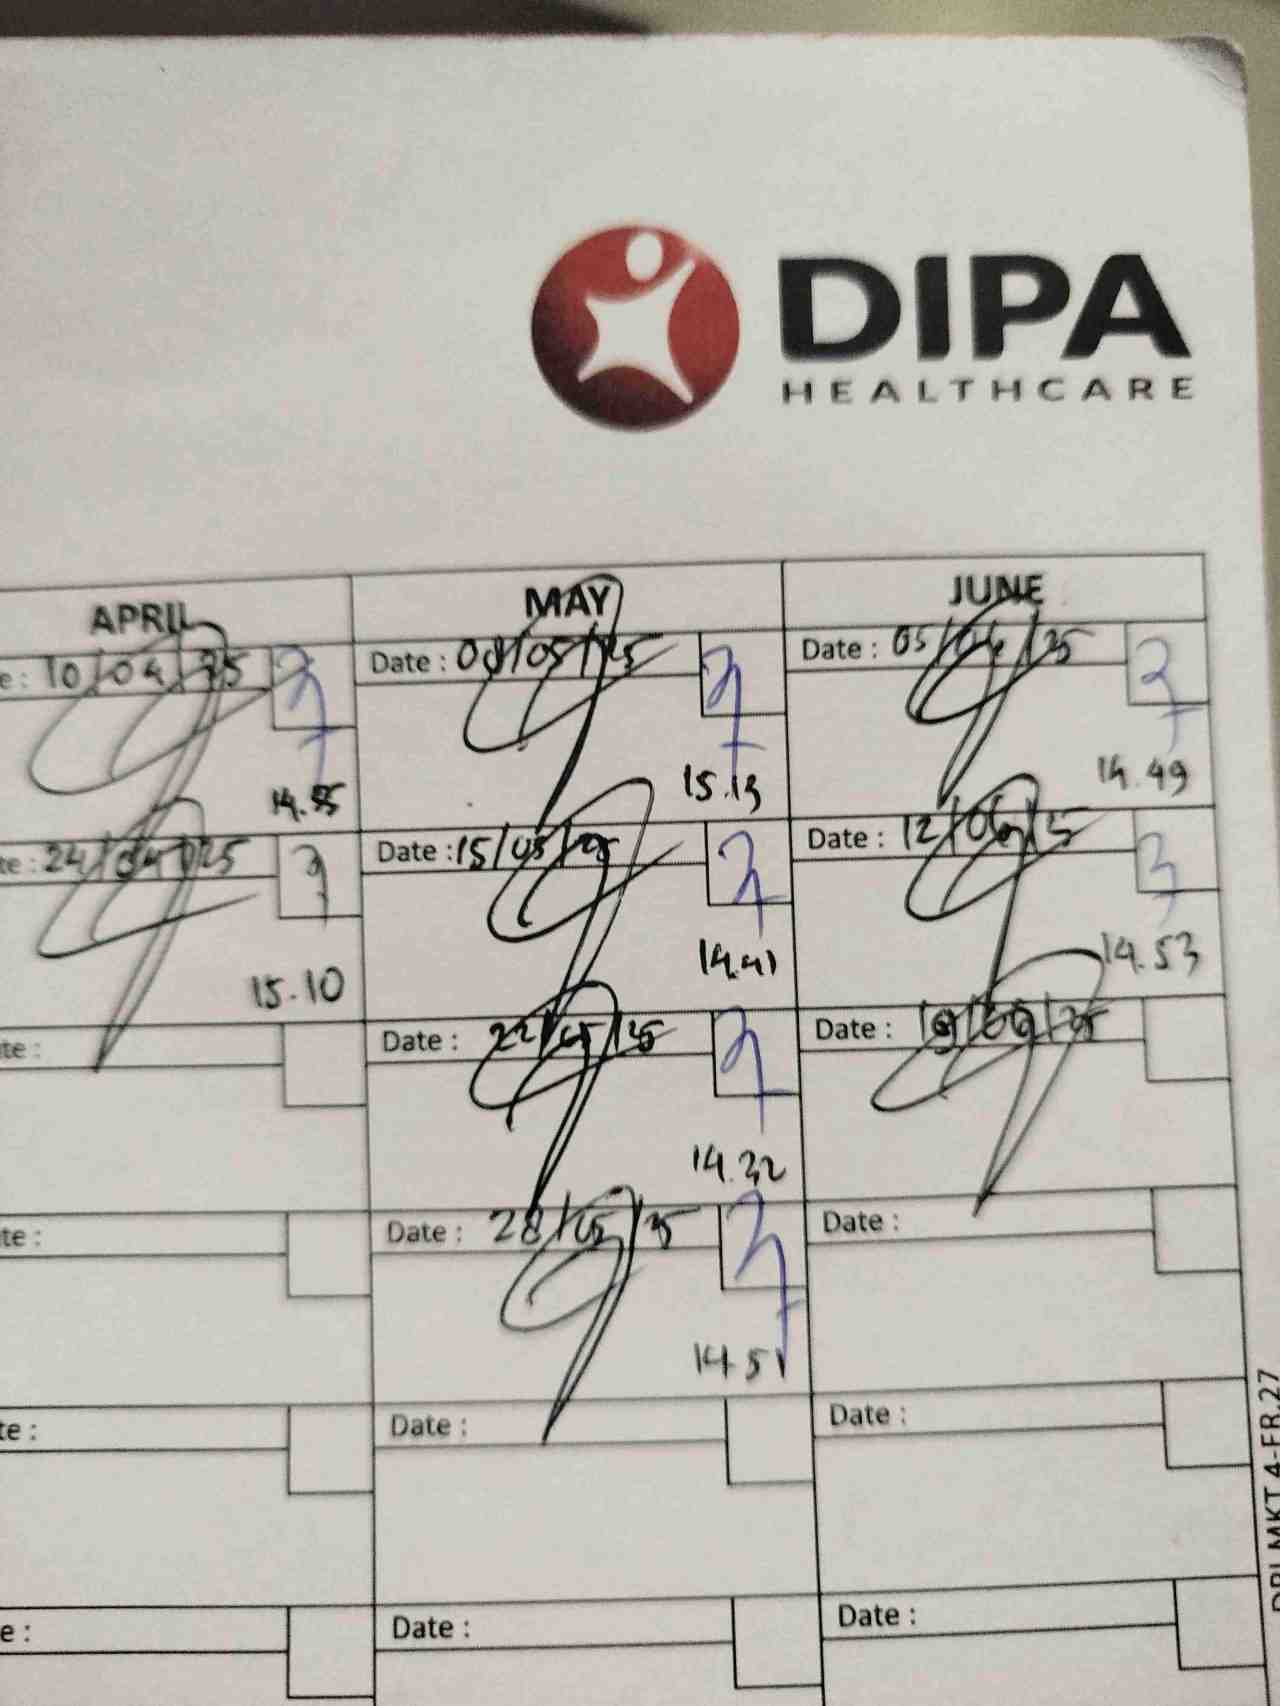 DIPA
HEALTHCARE
APRIL MAY JUNE
e : 10/04/25 Date : 08/05/25 Date : 05/06/25
14.55 15.13 14.49
te : 24/04/25 Date : 15/05/25 Date : 12/06/25
15.10 14.41 14.53
ate : Date : 22/05/25 Date : 19/06/25
14.32
ate : Date : 28/05/25 Date :
14 51
te : Date : Date :
e : Date : Date :